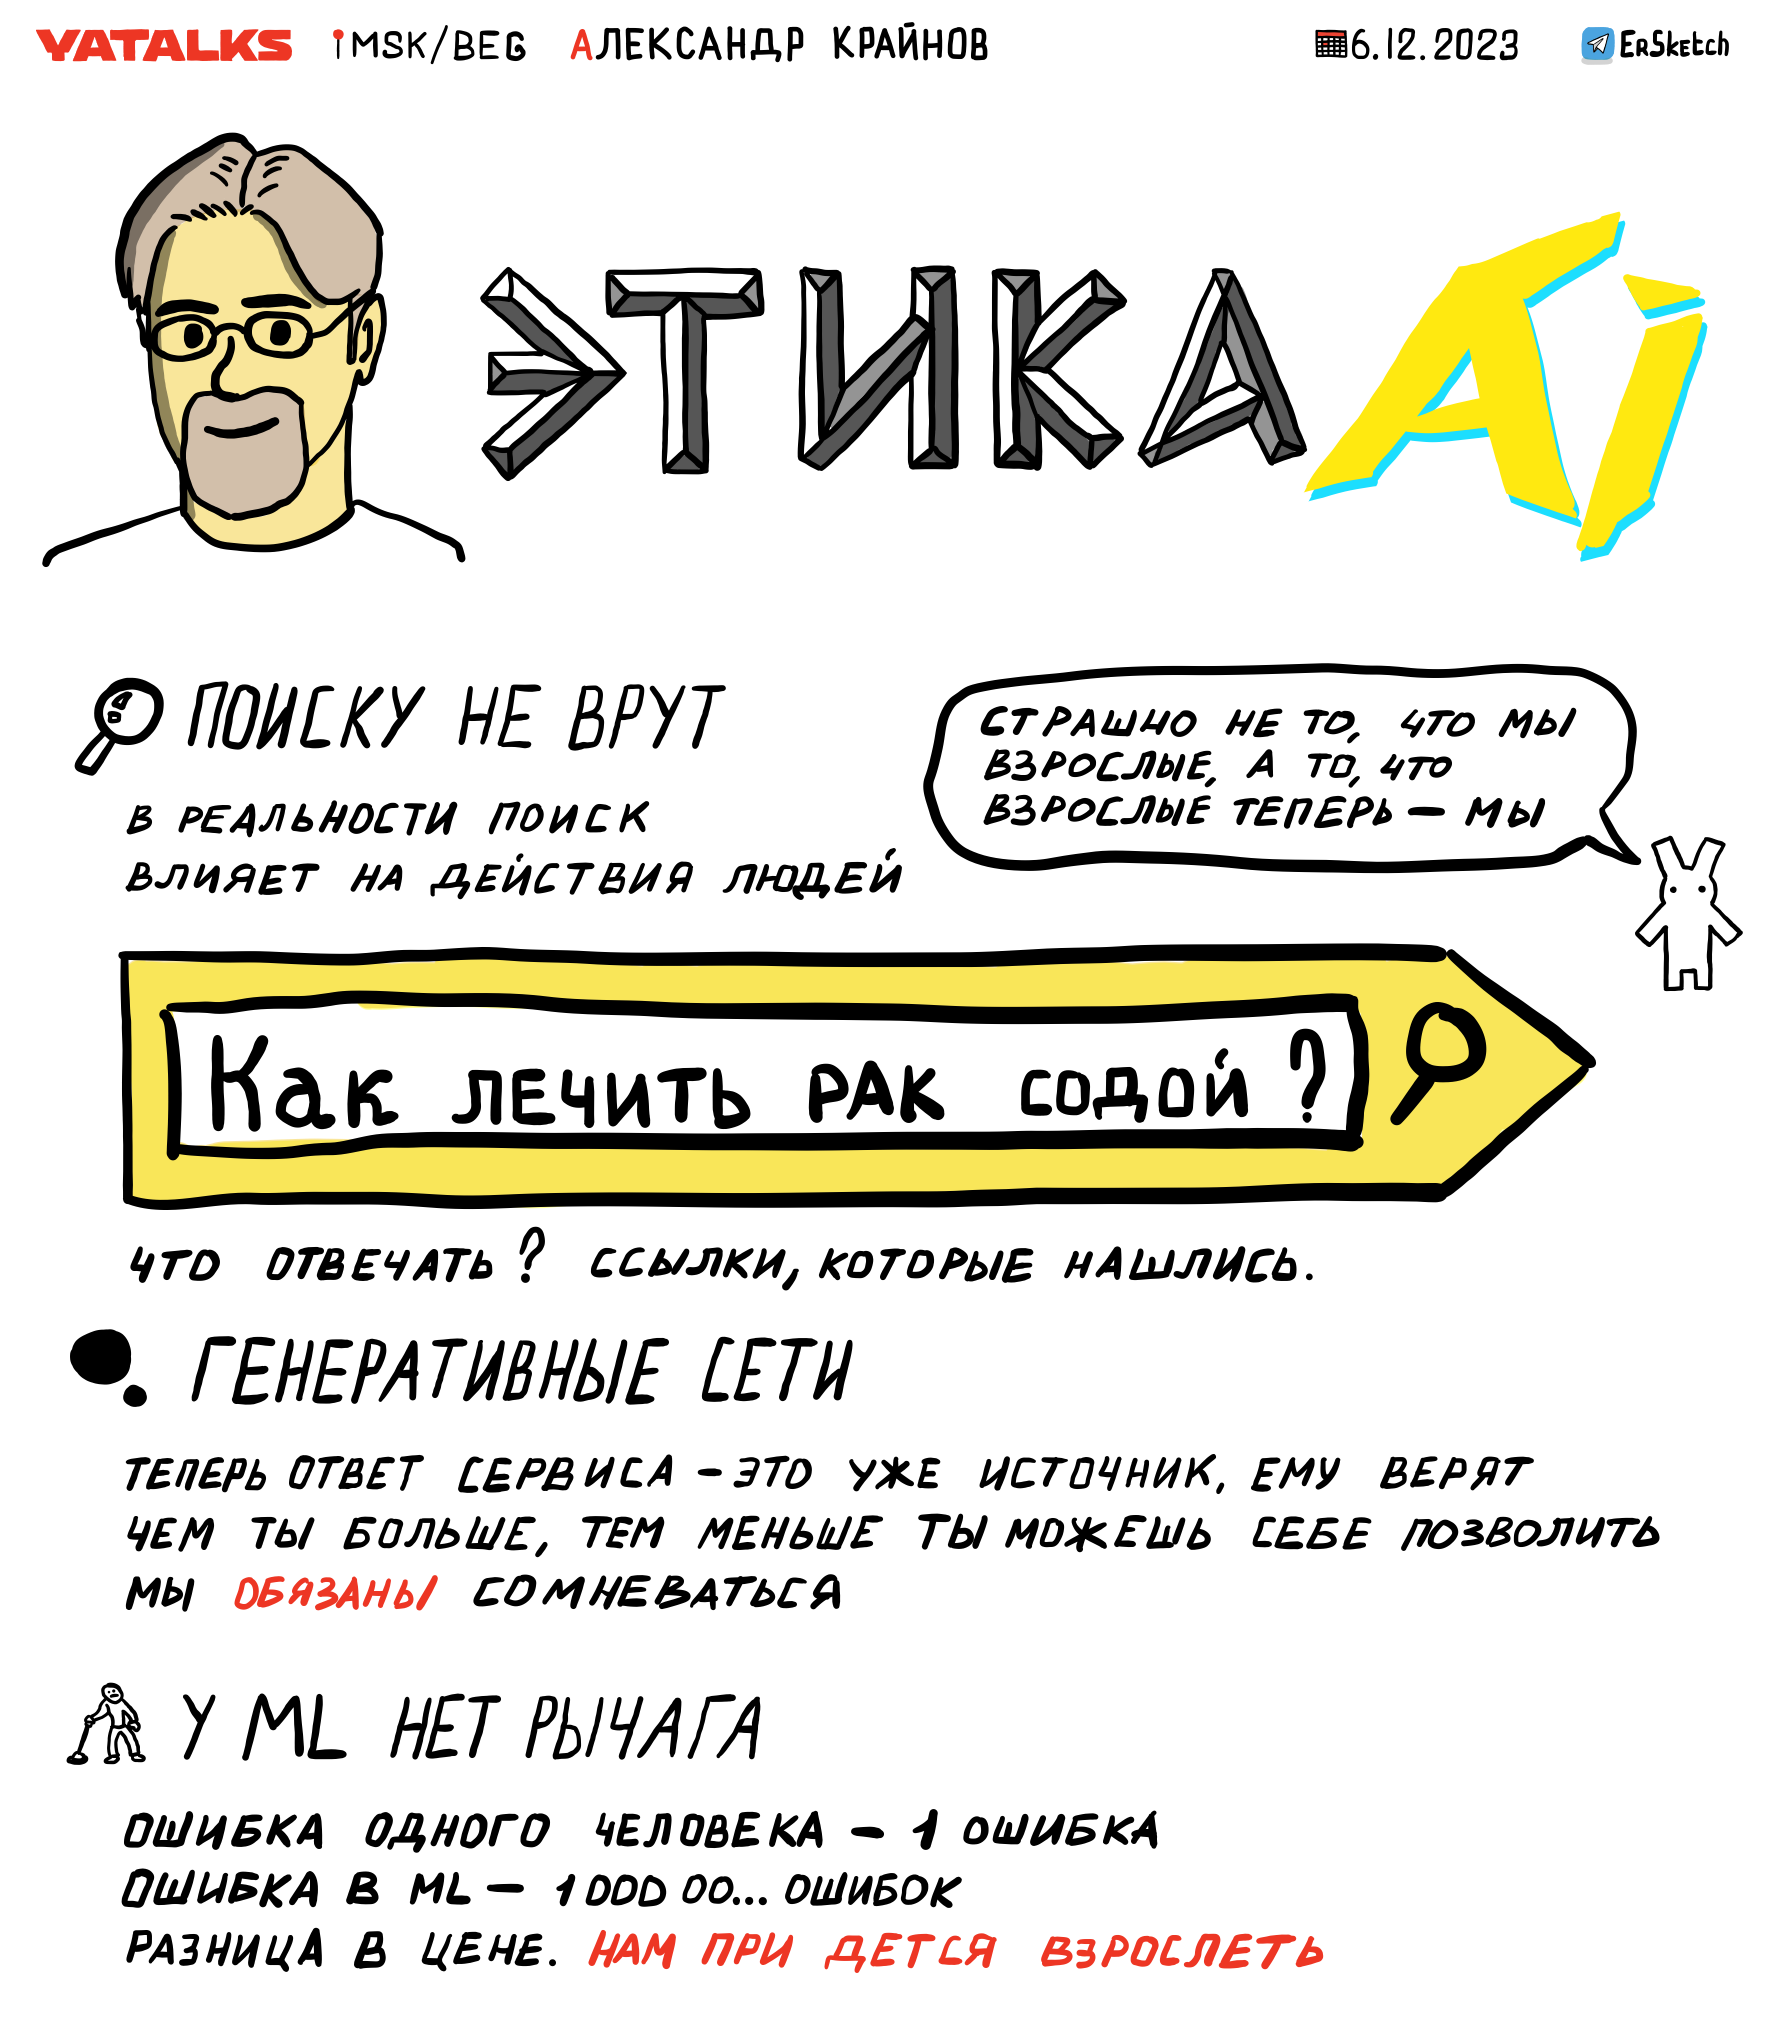 YATALKS MSK/BEG АЛЕКСАНДР КРАЙНОВ 6.12.2023 ErSketch
ЭТИКА Ai
ПОИСКУ НЕ ВРУТ
В РЕАЛЬНОСТИ ПОИСК
ВЛИЯЕТ НА ДЕЙСТВИЯ ЛЮДЕЙ
СТРАШНО НЕ ТО, ЧТО МЫ
ВЗРОСЛЫЕ, А ТО, ЧТО
ВЗРОСЛЫЕ ТЕПЕРЬ — МЫ
Как лечить рак содой?
ЧТО ОТВЕЧАТЬ? ССЫЛКИ, КОТОРЫЕ НАШЛИСЬ.
ГЕНЕРАТИВНЫЕ СЕТИ
ТЕПЕРЬ ОТВЕТ СЕРВИСА - ЭТО УЖЕ ИСТОЧНИК, ЕМУ ВЕРЯТ
ЧЕМ ТЫ БОЛЬШЕ, ТЕМ МЕНЬШЕ ТЫ МОЖЕШЬ СЕБЕ ПОЗВОЛИТЬ
МЫ ОБЯЗАНЫ СОМНЕВАТЬСЯ
У ML НЕТ РЫЧАГА
ОШИБКА ОДНОГО ЧЕЛОВЕКА — 1 ОШИБКА
ОШИБКА В ML — 1 000 00... ОШИБОК
РАЗНИЦА В ЦЕНЕ. НАМ ПРИ ДЕТСЯ ВЗРОСЛЕТЬ